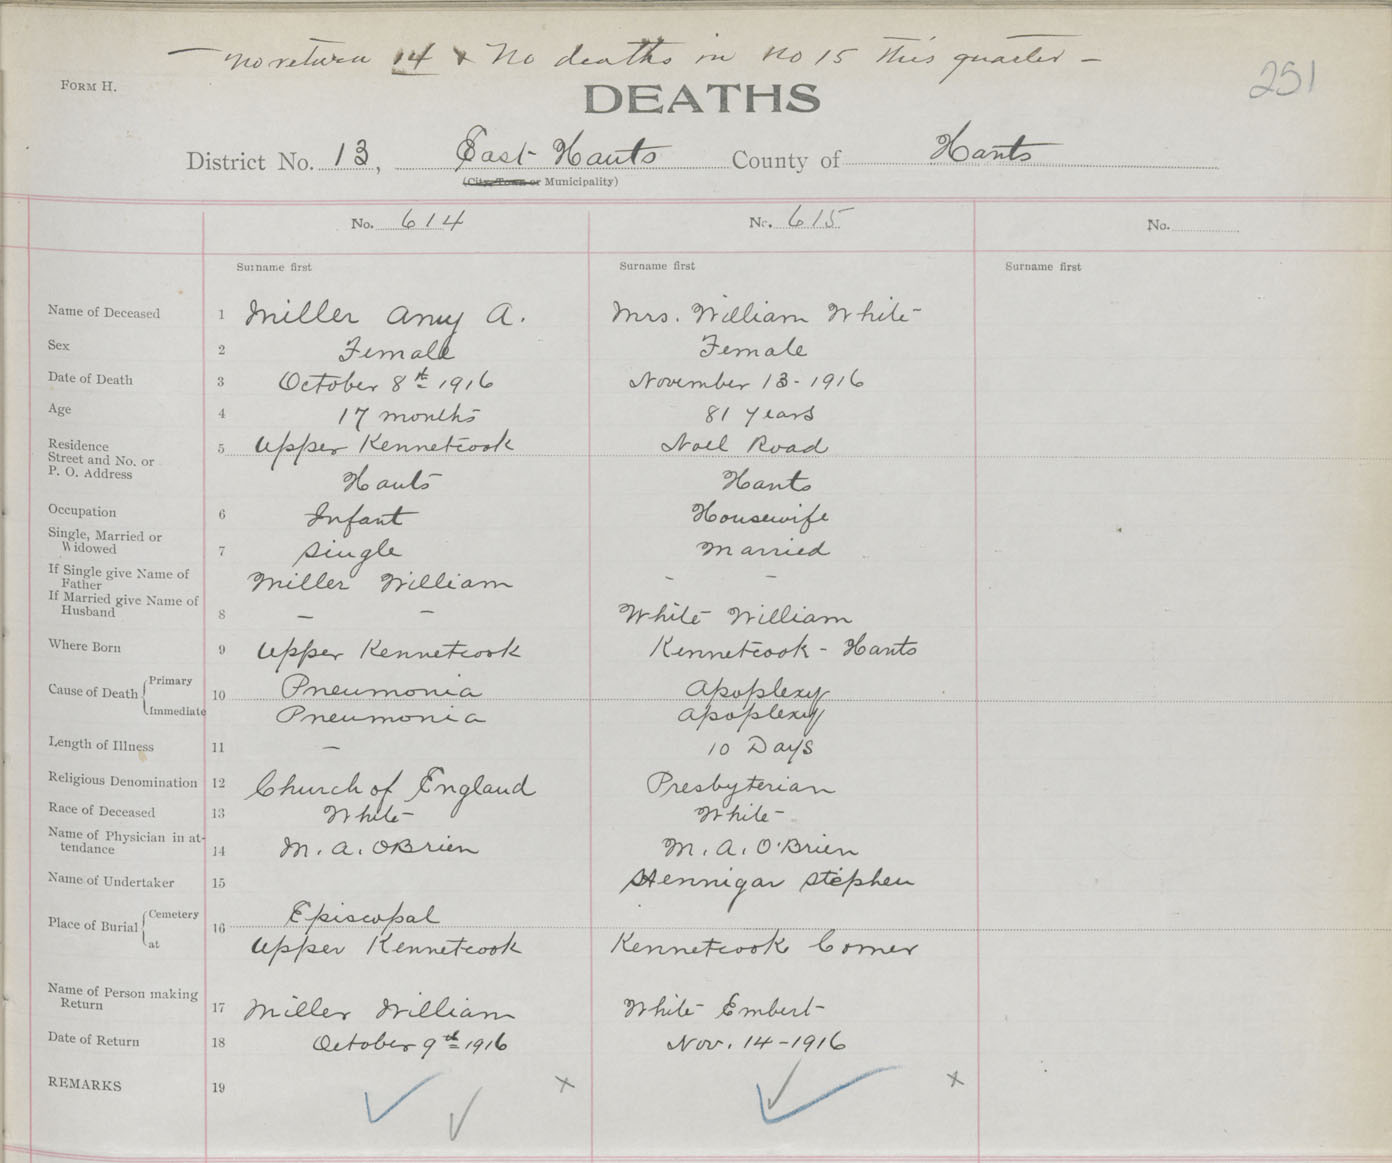 — No return 14 & No deaths in No 15 this quarter —
251
FORM H.
DEATHS
District No. 13, East Hants County of Hants
(City, Town or Municipality)
No. 614 No. 615 No.
Surname first Surname first Surname first
Name of Deceased 1 Miller Amy A. Mrs. William White
Sex 2 Female Female
Date of Death 3 October 8th 1916 November 13 - 1916
Age 4 17 months 81 years
Residence
Street and No. or
P. O. Address
5 Upper Kennetcook Noel Road
Hants Hants
Occupation 6 Infant Housewife
Single, Married or
Widowed 7 Single Married
If Single give Name of
Father Miller William - -
If Married give Name of
Husband 8 - - White William
Where Born 9 Upper Kennetcook Kennetcook - Hants
Cause of Death Primary 10 Pneumonia Apoplexy
Immediate Pneumonia Apoplexy
Length of Illness 11 - 10 Days
Religious Denomination 12 Church of England Presbyterian
Race of Deceased 13 White White
Name of Physician in at-
tendance 14 M. A. OBrien M. A. O'Brien
Name of Undertaker 15 Hennigar Stephen
Place of Burial Cemetery 16 Episcopal
at Upper Kennetcook Kennetcook Corner
Name of Person making
Return 17 Miller William White Embert
Date of Return 18 October 9th 1916 Nov. 14 - 1916
REMARKS 19 ✓ ✓ x ✓ ✓ x